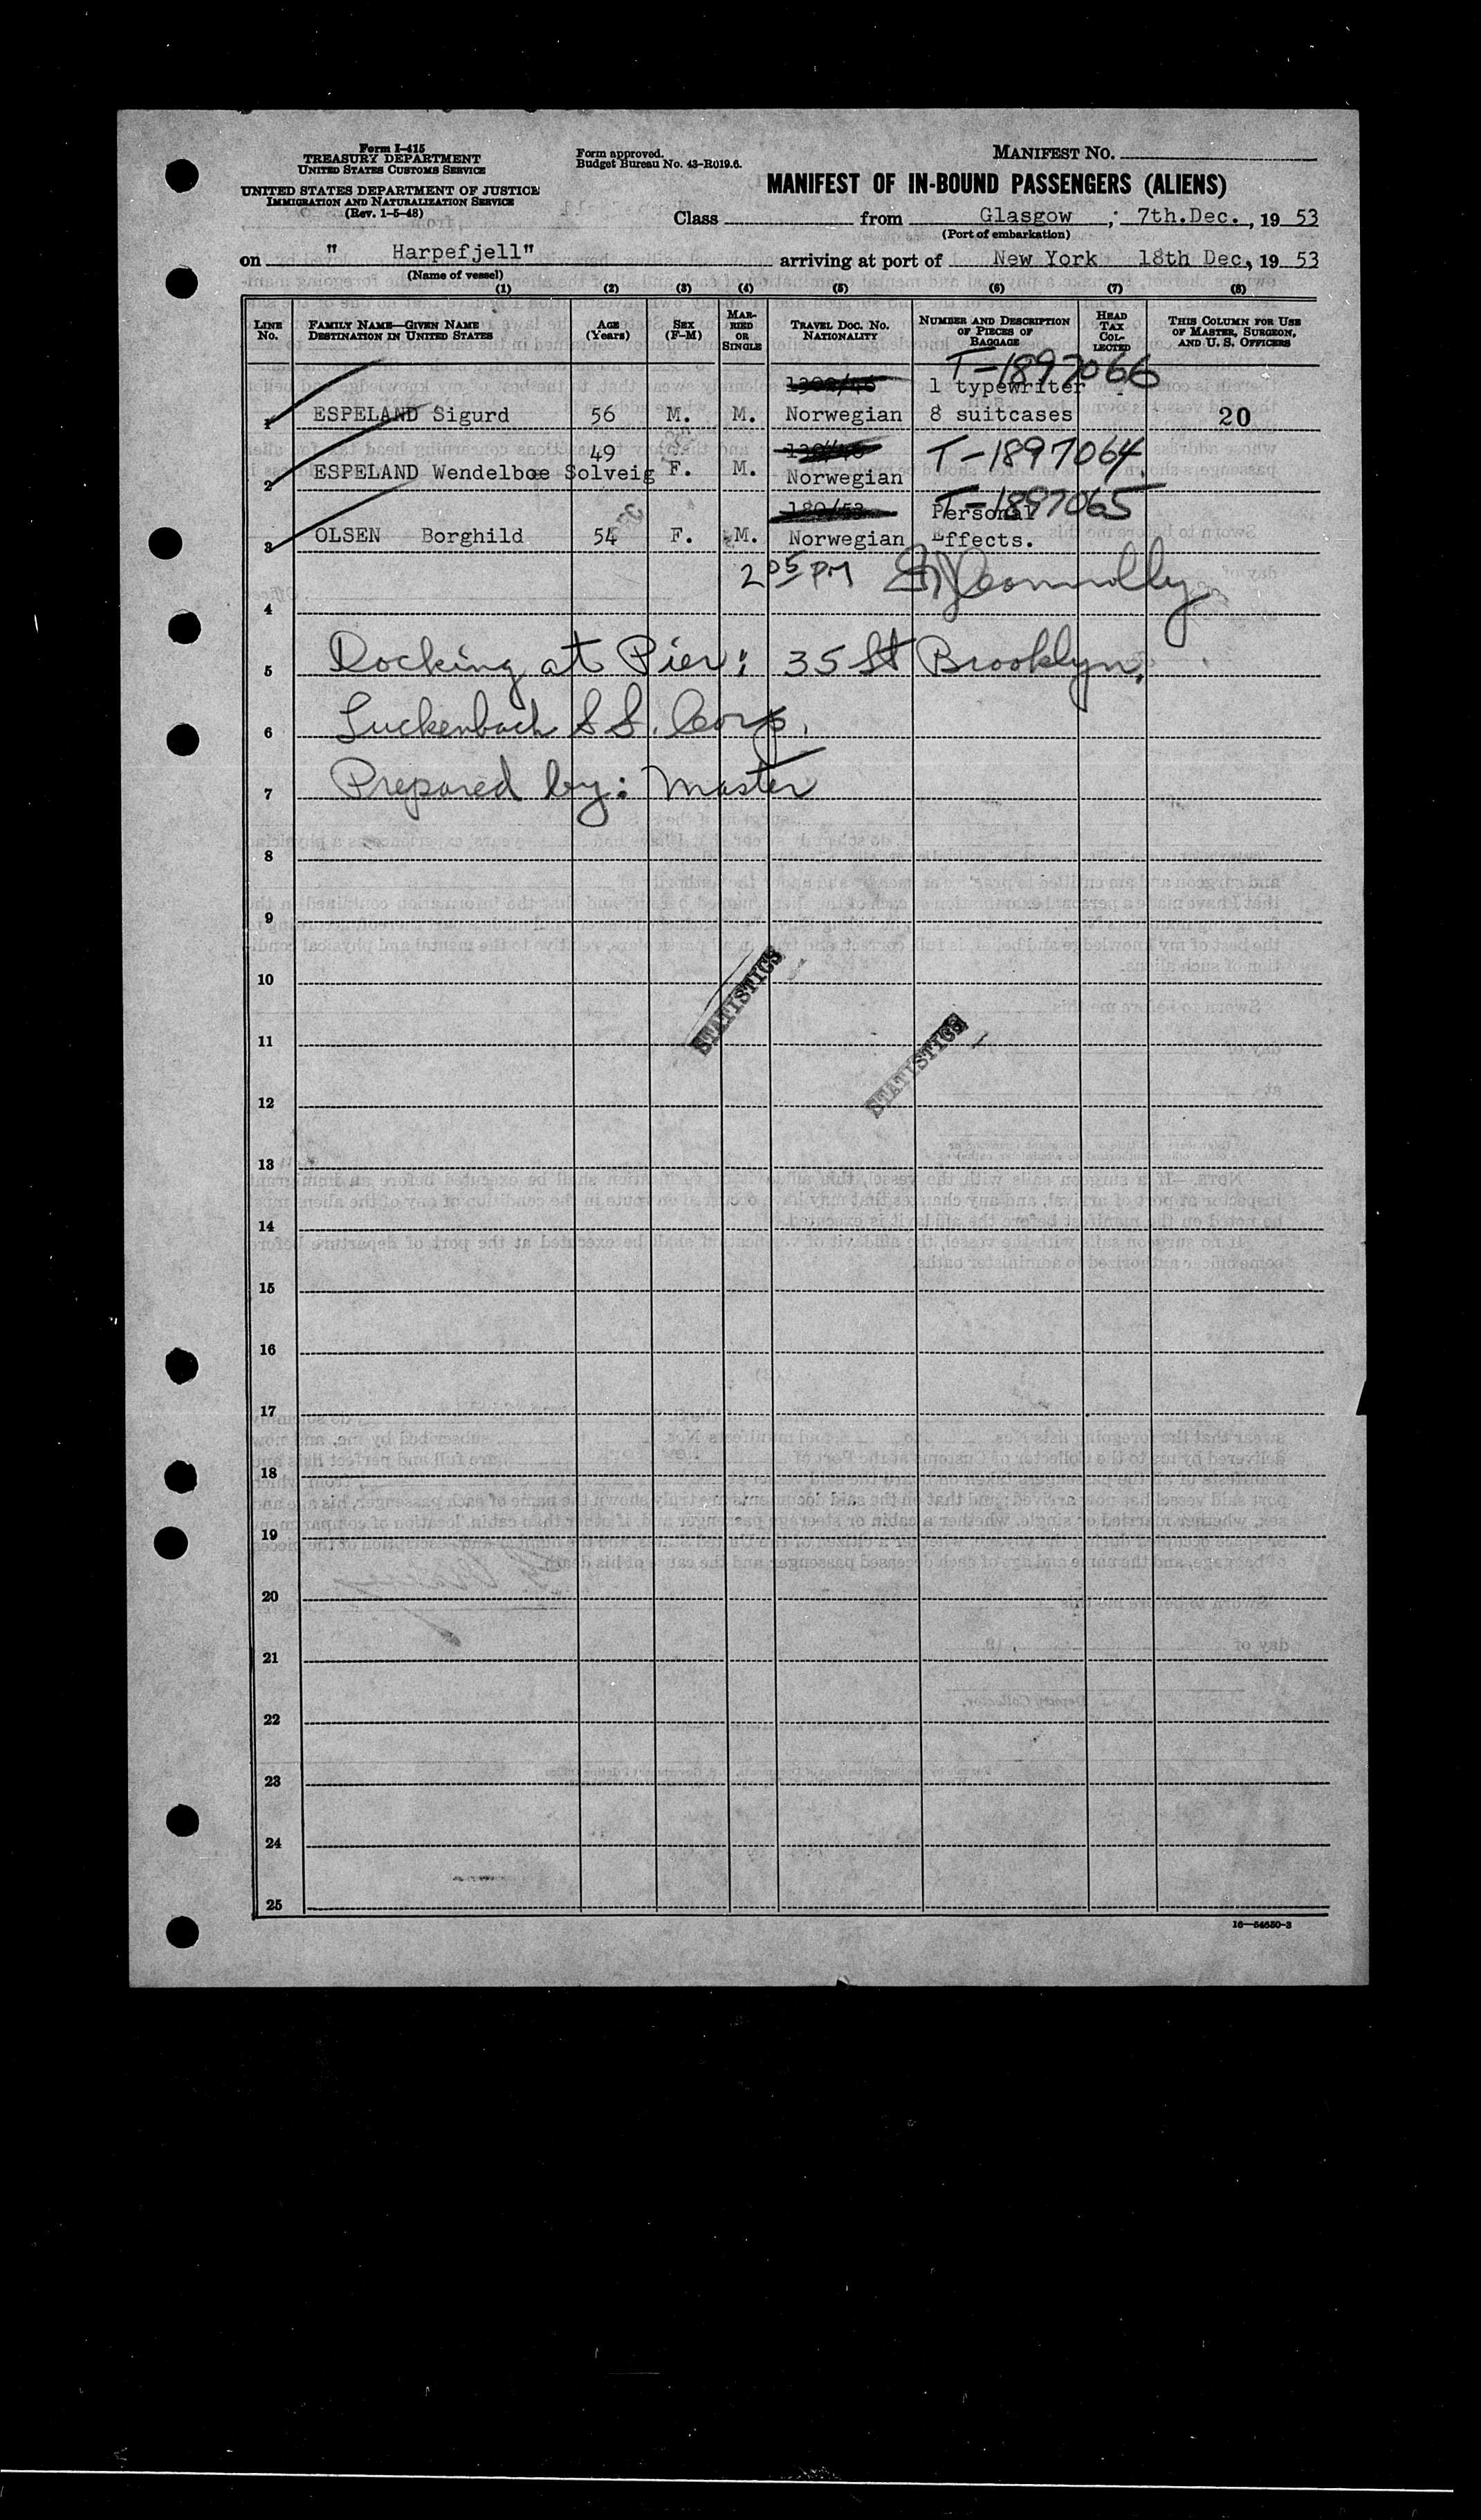 Form I-415
TREASURY DEPARTMENT
UNITED STATES CUSTOMS SERVICE
UNITED STATES DEPARTMENT OF JUSTICE
IMMIGRATION AND NATURALIZATION SERVICE
(Rev. 1-5-48)
Form approved.
Budget Bureau No. 43-R019.6.
MANIFEST NO.
MANIFEST OF IN-BOUND PASSENGERS (ALIENS)
Class from Glasgow ; 7th.Dec. , 19 53
(Port of embarkation)
on " Harpefjell" arriving at port of New York 18th Dec, 19 53
(Name of vessel)
(1) (2) (3) (4) (5) (6) (7) (8)
LINE No. FAMILY NAME—GIVEN NAME DESTINATION IN UNITED STATES AGE (Years) SEX (F-M) MARRIED OR SINGLE TRAVEL DOC. NO. NATIONALITY NUMBER AND DESCRIPTION OF PIECES OF BAGGAGE HEAD TAX COLLECTED THIS COLUMN FOR USE OF MASTER, SURGEON, AND U. S. OFFICERS
T-1897066
1 typewriter
1 ESPELAND Sigurd 56 M. M. Norwegian 8 suitcases 20
49 T-1897064
2 ESPELAND Wendelboe Solveig F. M. Norwegian
T-1897065
180/53 Personal
3 OLSEN Borghild 54 F. M. Norwegian Effects.
2 05 PM Connolly
4
5 Docking at Pier: 35 St Brooklyn.
6 Luckenbach S S. Corp.
7 Prepared by: Master
8
9
10
STATISTICS
11
STATISTICS
12
13
14
15
16
17
18
19
20
21
22
23
24
25
16—54650-3